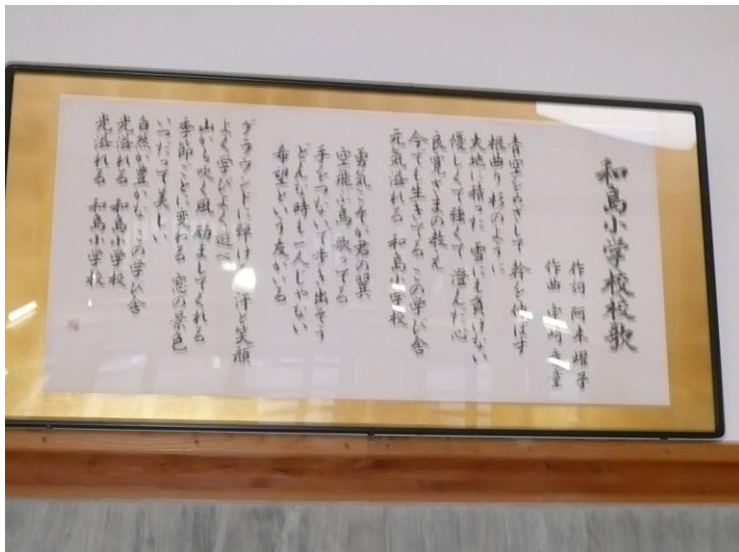 和島小学校校歌
作詞 阿木燿子
作曲 宇崎竜童
青空をめざして 幹を伸ばす
根曲り杉のように
大地に積った 雪にも負けない
優しくて強くて 澄んだ心
良寛さまの教え
今でも生きてる この学び舎
元気溢れる 和島小学校
勇気こそが君の翼
空飛ぶ鳥 歌ってる
手をつないで 歩き出そう
どんな時も一人じゃない
希望という友がいる
グラウンドに弾ける 汗と笑顔
よく学びよく遊べ
山から吹く風 励ましてくれる
季節ごとに変わる 窓の景色
いつだって美しい
自然が豊かな この学び舎
光溢れる 和島小学校
光溢れる 和島小学校